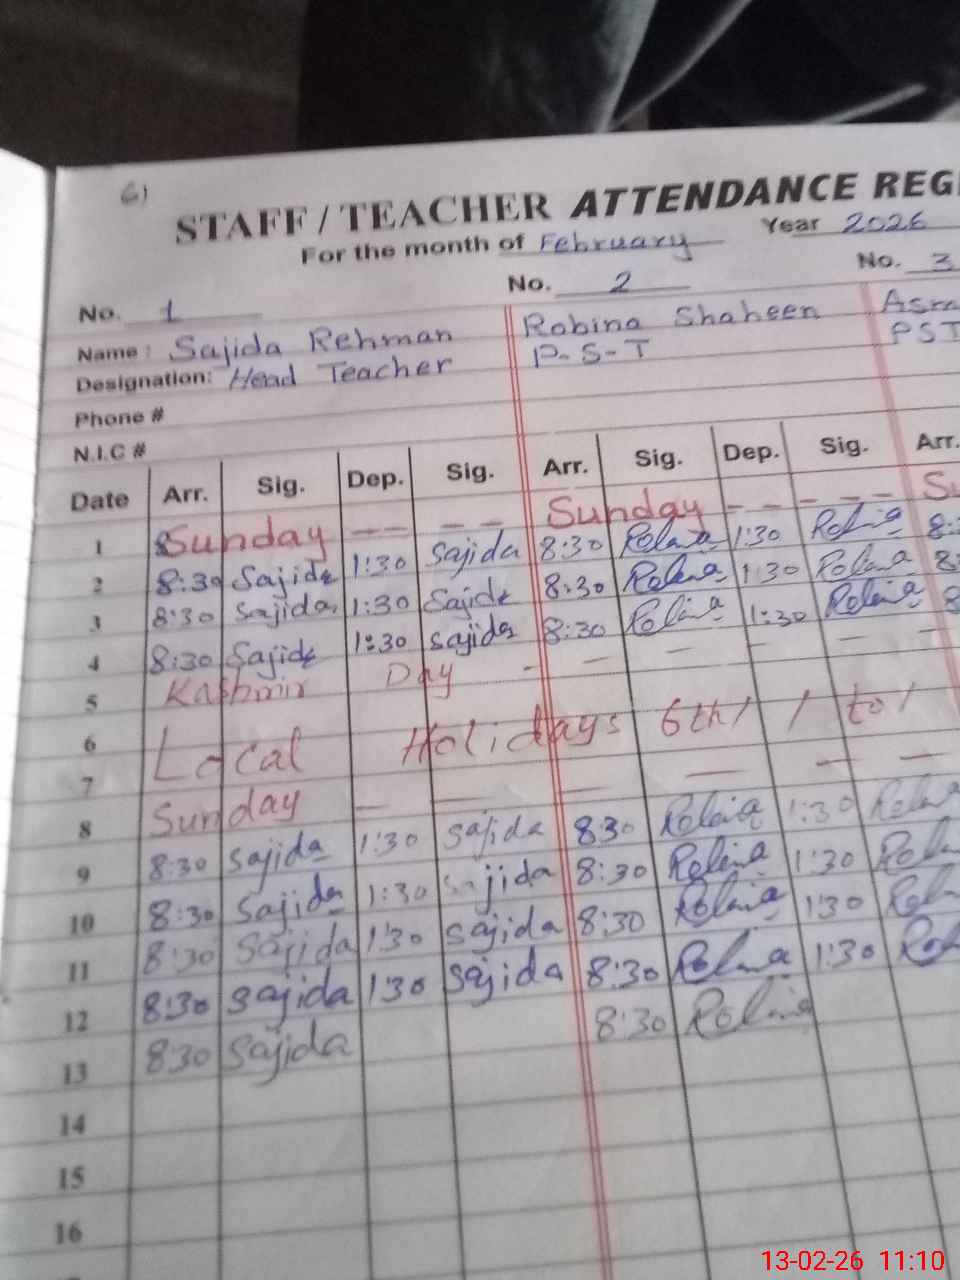 6)
STAFF / TEACHER ATTENDANCE REG
For the month of February Year 2026
No. 1 No. 2 No. 3
Name : Sajida Rehman Robina Shaheen Asm
Designation: Head Teacher P-S-T PST
Phone #
N.I.C #
Date Arr. Sig. Dep. Sig. Arr. Sig. Dep. Sig. Arr.
1 Sunday -- -- Sunday -- --- Su
2 8:30 Sajida 1:30 Sajida 8:30 Robina 1:30 Robina 8:
3 8:30 Sajida 1:30 Sajida 8:30 Robina 1:30 Robina 8:
4 8:30 Sajida 1:30 Sajida 8:30 Robina 1:30 Robina 8
5 Kashmir Day - - - - - -
6 Local Holidays 6th / / to /
7
8 Sunday - - - - - -
9 8:30 Sajida 1:30 Sajida 830 Robina 1:30 Robina
10 8:30 Sajida 1:30 Sajida 8:30 Robina 1:30 Rob
11 8:30 Sajida 1:30 Sajida 8:30 Robina 1:30 Rob
12 8:30 Sajida 1:30 Sajida 8:30 Robina 1:30 Rob
13 830 Sajida 8:30 Robina
14
15
16
13-02-26 11:10